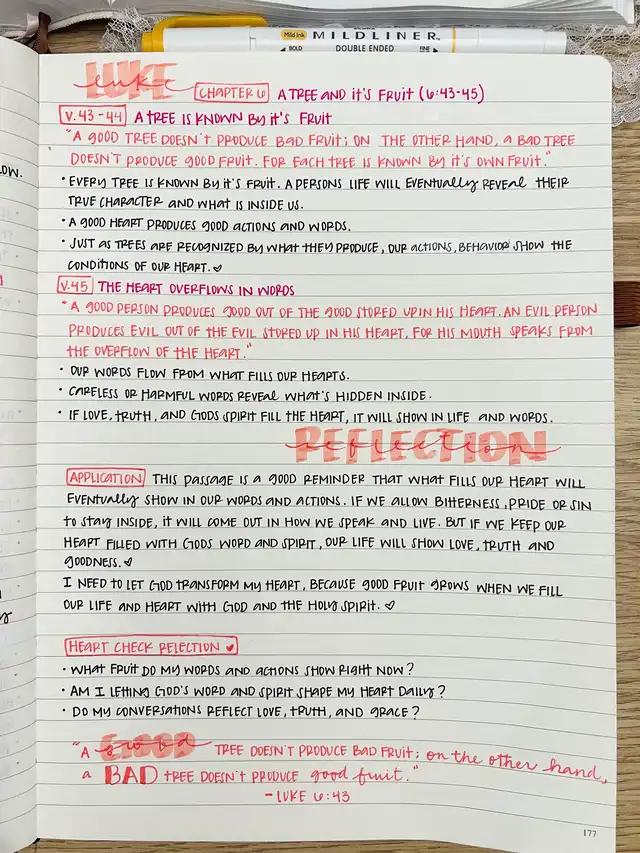 Mild ink MILDLINER
BOLD DOUBLE ENDED FINE
LUKE luke CHAPTER 6 A TREE AND it's FRUIT (6:43-45)
V.43-44 A TREE IS KNOWN BY it's FRUIT
"A GOOD TREE DOESN't PRODUCE BAD FRUIT; ON THE OTHER HAND, A BAD TREE
DOESN't PRODUCE GOOD FRUIT. FOR EACH TREE IS KNOWN BY it's OWN FRUIT."
• EVERY TREE IS KNOWN BY it's FRUIT. A PERSONS LIFE WILL EVENTUALLY REVEAL THEIR
TRUE CHARACTER AND WHAT IS INSIDE US.
• A GOOD HEART PRODUCES GOOD ACTIONS AND WORDS.
• JUST AS TREES ARE RECOGNIZED BY WHAT THEY PRODUCE, OUR ACTIONS, BEHAVIOR SHOW THE
CONDITIONS OF OUR HEART. ♡
V.45 THE HEART OVERFLOWS IN WORDS
"A GOOD PERSON PRODUCES GOOD OUT OF THE GOOD STORED UP IN HIS HEART. AN EVIL PERSON
PRODUCES EVIL OUT OF THE EVIL STORED UP IN HIS HEART, FOR HIS MOUTH SPEAKS FROM
THE OVERFLOW OF THE HEART."
• OUR WORDS FLOW FROM WHAT FILLS OUR HEARTS.
• CARELESS OR HARMFUL WORDS REVEAL WHAT'S HIDDEN INSIDE.
• IF LOVE, TRUTH, AND GODS SPIRIT FILL THE HEART, IT WILL SHOW IN LIFE AND WORDS.
REFLECTION reflection
APPLICATION THIS PASSAGE IS A GOOD REMINDER THAT WHAT FILLS OUR HEART WILL
EVENTUALLY SHOW IN OUR WORDS AND ACTIONS. IF WE ALLOW BITTERNESS, PRIDE OR SIN
to stay INSIDE, IT WILL COME OUT IN HOW WE SPEAK AND LIVE. BUT IF WE KEEP OUR
HEART FILLED WITH GODS WORD AND SPIRIT, OUR LIFE WILL SHOW LOVE, TRUTH AND
GOODNESS. ♡
I NEED TO LET GOD TRANSFORM MY HEART, BECAUSE GOOD FRUIT GROWS WHEN WE FILL
OUR LIFE AND HEART WITH GOD AND THE HOLY SPIRIT. ♡
HEART CHECK RELECTION ♥
• WHAT FRUIT DO MY WORDS AND ACTIONS SHOW RIGHT NOW?
• AM I LETTING GOD'S WORD AND SPIRIT SHAPE MY HEART DAILY?
• DO MY CONVERSATIONS REFLECT LOVE, TRUTH, AND GRACE?
"A GOOD good TREE DOESN'T PRODUCE BAD FRUIT; on the other hand,
a BAD TREE DOESN'T PRODUCE good fruit."
- LUKE 6:43
177